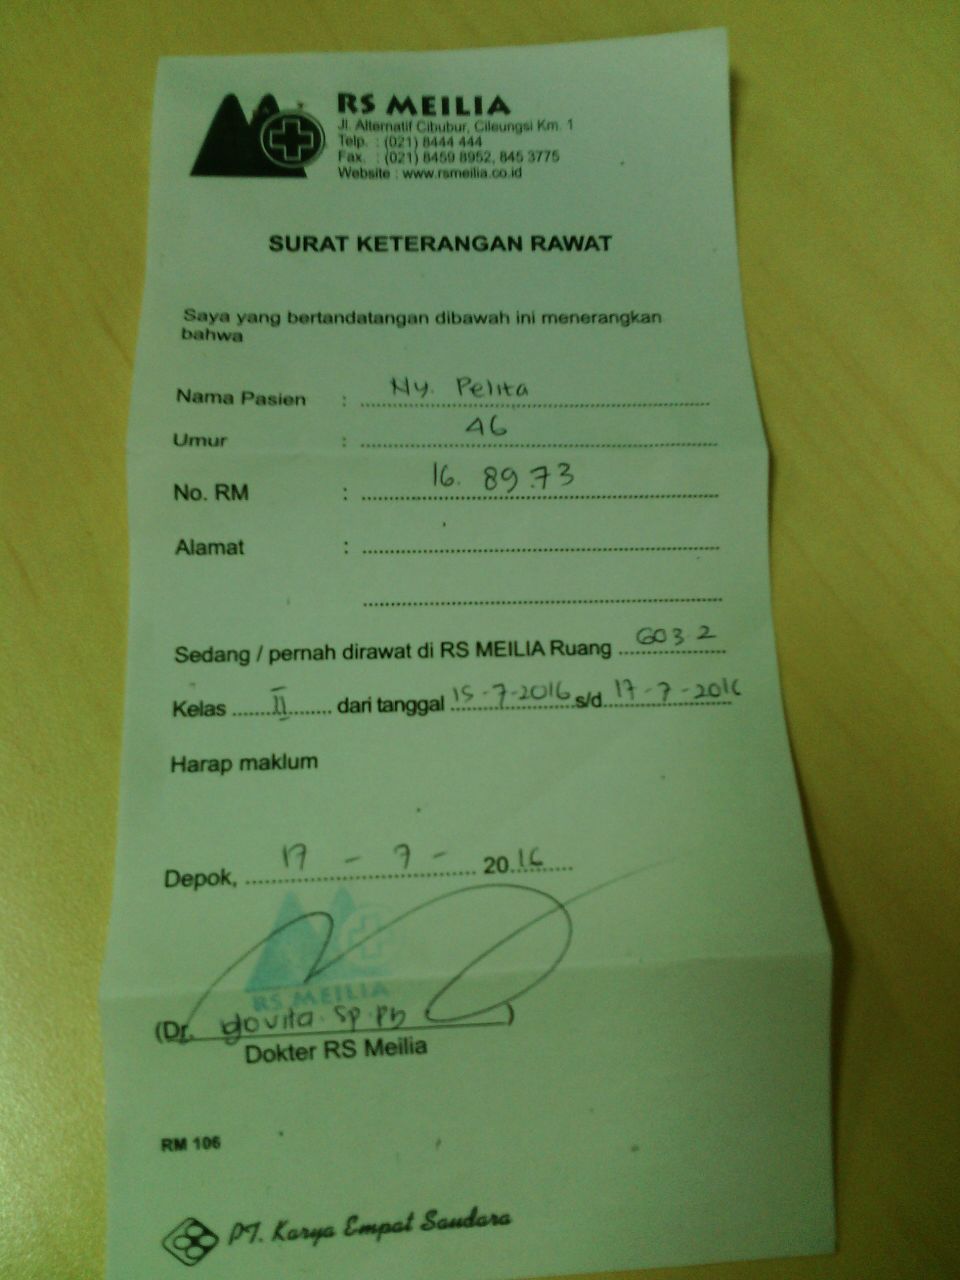 RS MEILIA
Jl. Alternatif Cibubur, Cileungsi Km. 1
Telp. : (021) 8444 444
Fax. : (021) 8459 8952, 845 3775
Website : www.rsmeilia.co.id
SURAT KETERANGAN RAWAT
Saya yang bertandatangan dibawah ini menerangkan
bahwa
Nama Pasien : Ny. Pelita
Umur : 46
No. RM : 16. 89.73
Alamat :
Sedang / pernah dirawat di RS MEILIA Ruang 603 2
Kelas II dari tanggal 15-7-2016 s/d 17-7-2016
Harap maklum
Depok, 17 - 7 - 2016
RS MEILIA
(Dr. Yovita. Sp.PD)
Dokter RS Meilia
RM 106
PT. Karya Empat Saudara